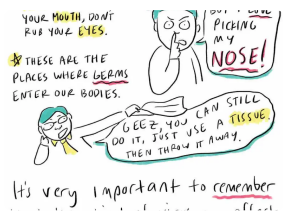 YOUR MOUTH, DON'T
RUB YOUR EYES.
THESE ARE THE
PLACES WHERE GERMS
ENTER OUR BODIES.
PICKING
MY
NOSE!
GEEZ, YOU CAN STILL
DO IT, JUST USE A TISSUE.
THEN THROW IT AWAY.
It's very important to remember